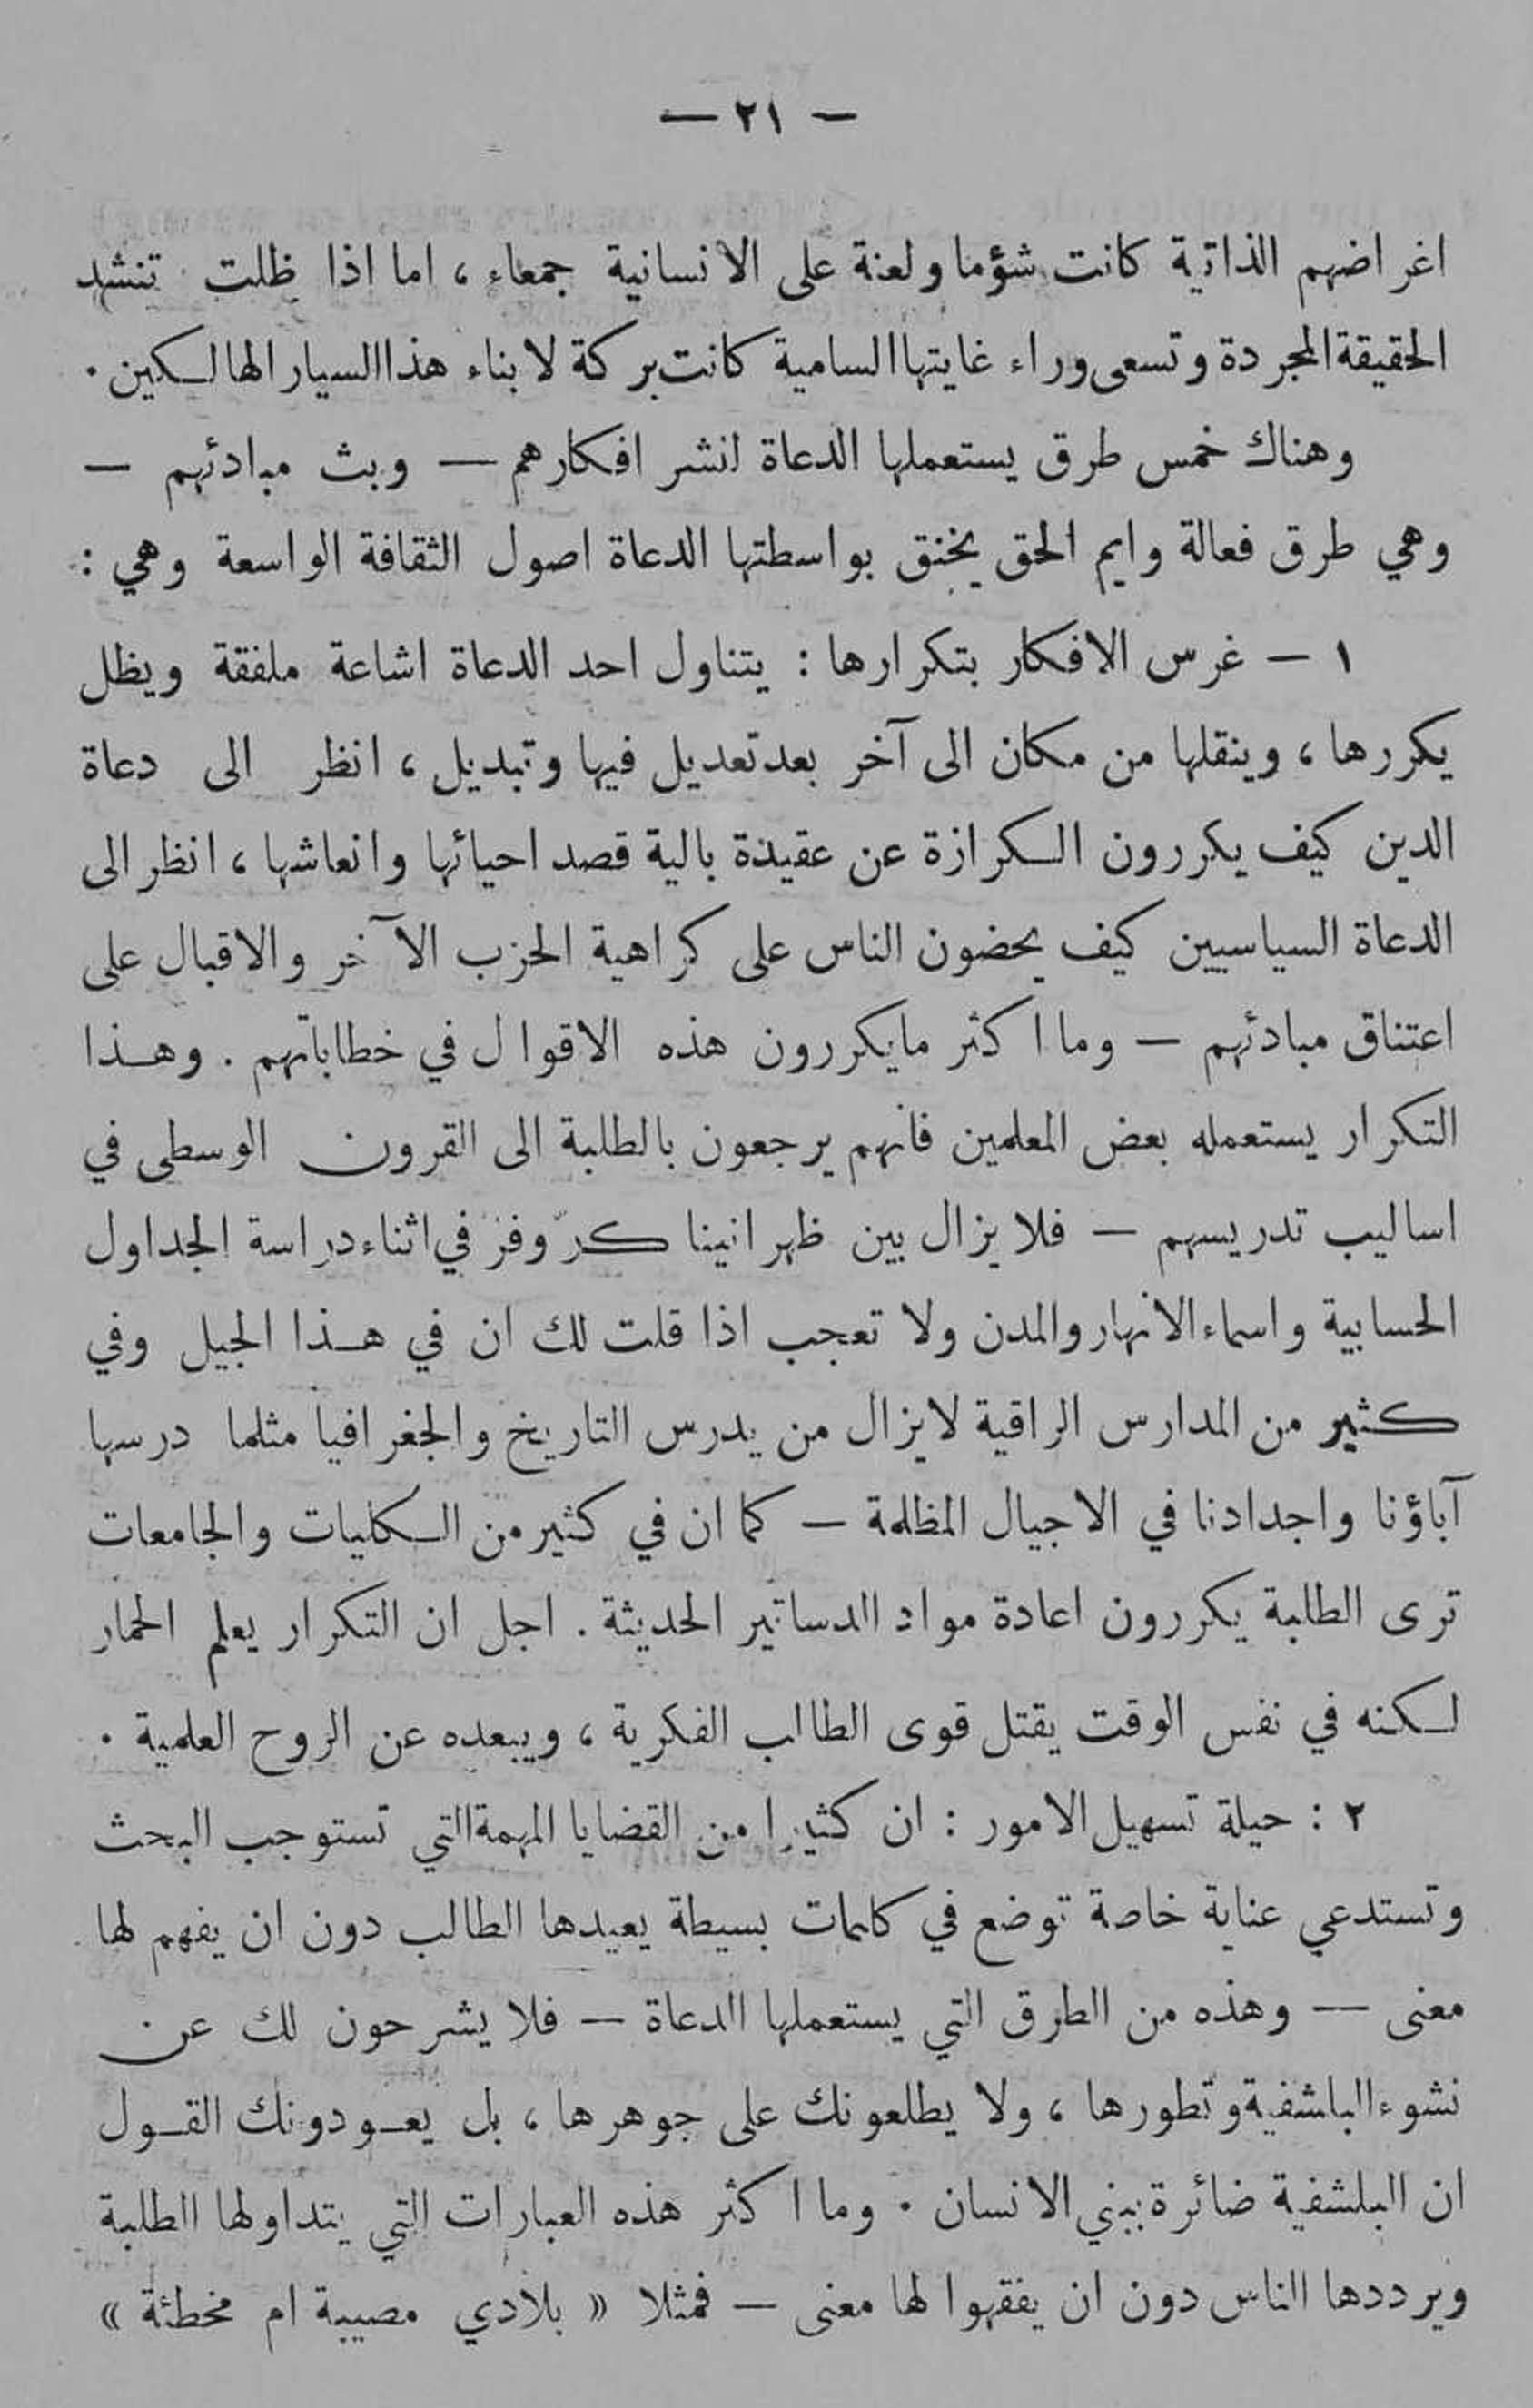 — ٢١ —
اغراضهم الذاتية كانت شؤما ولعنة على الانسانية جمعاء ، اما اذا ظلت تنشد
الحقيقة المجردة وتسعى وراء غايتها السامية كانت بركة لابناء هذا السيار الهالكين .
وهناك خمس طرق يستعملها الدعاة لنشر افكارهم — وبث مبادئهم —
وهي طرق فعالة وايم الحق يخنق بواسطتها الدعاة اصول الثقافة الواسعة وهي :
١ — غرس الافكار بتكرارها : يتناول احد الدعاة اشاعة ملفقة ويظل
يكررها ، وينقلها من مكان الى آخر بعد تعديل فيها وتبديل ، انظر الى دعاة
الدين كيف يكررون الكرازة عن عقيدة بالية قصد احيائها وانعاشها ، انظر الى
الدعاة السياسيين كيف يحضون الناس على كراهية الحزب الآخر والاقبال على
اعتناق مبادئهم — وما اكثر ما يكررون هذه الاقوال في خطاباتهم . وهذا
التكرار يستعمله بعض المعلمين فانهم يرجعون بالطلبة الى القرون الوسطى في
اساليب تدريسهم — فلا يزال بين ظهرانينا كرّ وفرّ في اثناء دراسة الجداول
الحسابية واسماء الانهار والمدن ولا تعجب اذا قلت لك ان في هذا الجيل وفي
كثير من المدارس الراقية لا يزال من يدرس التاريخ والجغرافيا مثلما درسها
آباؤنا واجدادنا في الاجيال المظلمة — كما ان في كثير من الكليات والجامعات
ترى الطلبة يكررون اعادة مواد الدساتير الحديثة . اجل ان التكرار يعلم الحمار
لكنه في نفس الوقت يقتل قوى الطالب الفكرية ، ويبعده عن الروح العلمية .
٢ : حيلة تسهيل الامور : ان كثيرا من القضايا المهمة التي تستوجب البحث
وتستدعي عناية خاصة توضع في كلمات بسيطة يعيدها الطالب دون ان يفهم لها
معنى — وهذه من الطرق التي يستعملها الدعاة — فلا يشرحون لك عن
نشوء البلشفية وتطورها ، ولا يطلعونك على جوهرها ، بل يعودونك القول
ان البلشفية ضائرة ببني الانسان . وما اكثر هذه العبارات التي يتداولها الطلبة
ويرددها الناس دون ان يفقهوا لها معنى — فمثلا « بلادي مصيبة ام مخطئة »